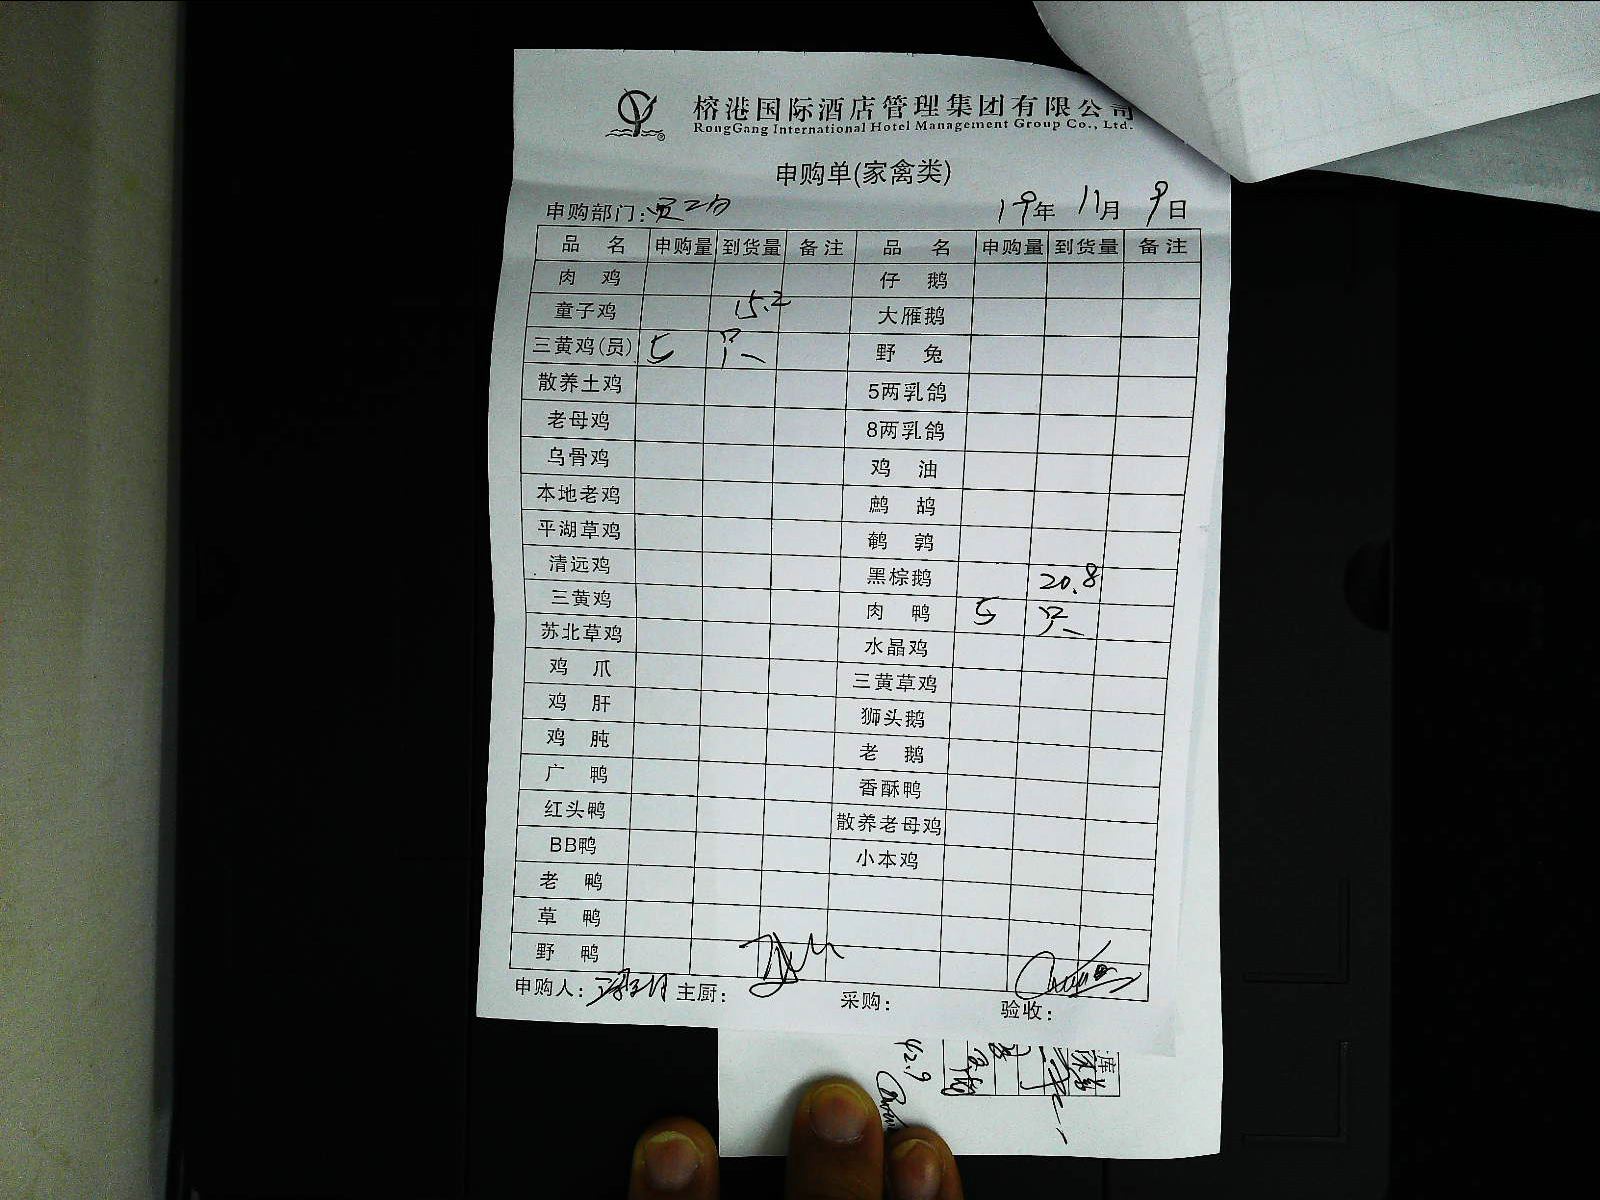 榕港国际酒店管理集团有限公司
RongGang International Hotel Management Group Co., Ltd.
申购单(家禽类)
申购部门: 员工 19年 11月 9日
品 名 申购量 到货量 备注 品 名 申购量 到货量 备注
肉 鸡 仔 鹅
童子鸡 15.2 大雁鹅
三黄鸡(员) 5 只 野 兔
散养土鸡 5两乳鸽
老母鸡 8两乳鸽
乌骨鸡 鸡 油
本地老鸡 鹧 鸪
平湖草鸡 鹌 鹑
清远鸡 黑棕鹅 20.8
三黄鸡 肉 鸭 5 只
苏北草鸡 水晶鸡
鸡 爪 三黄草鸡
鸡 肝 狮头鹅
鸡 肫 老 鹅
广 鸭 香酥鸭
红头鸭 散养老母鸡
BB鸭 小本鸡
老 鸭
草 鸭
野 鸭
申购人: 主厨: 采购: 验收:
库
42.9